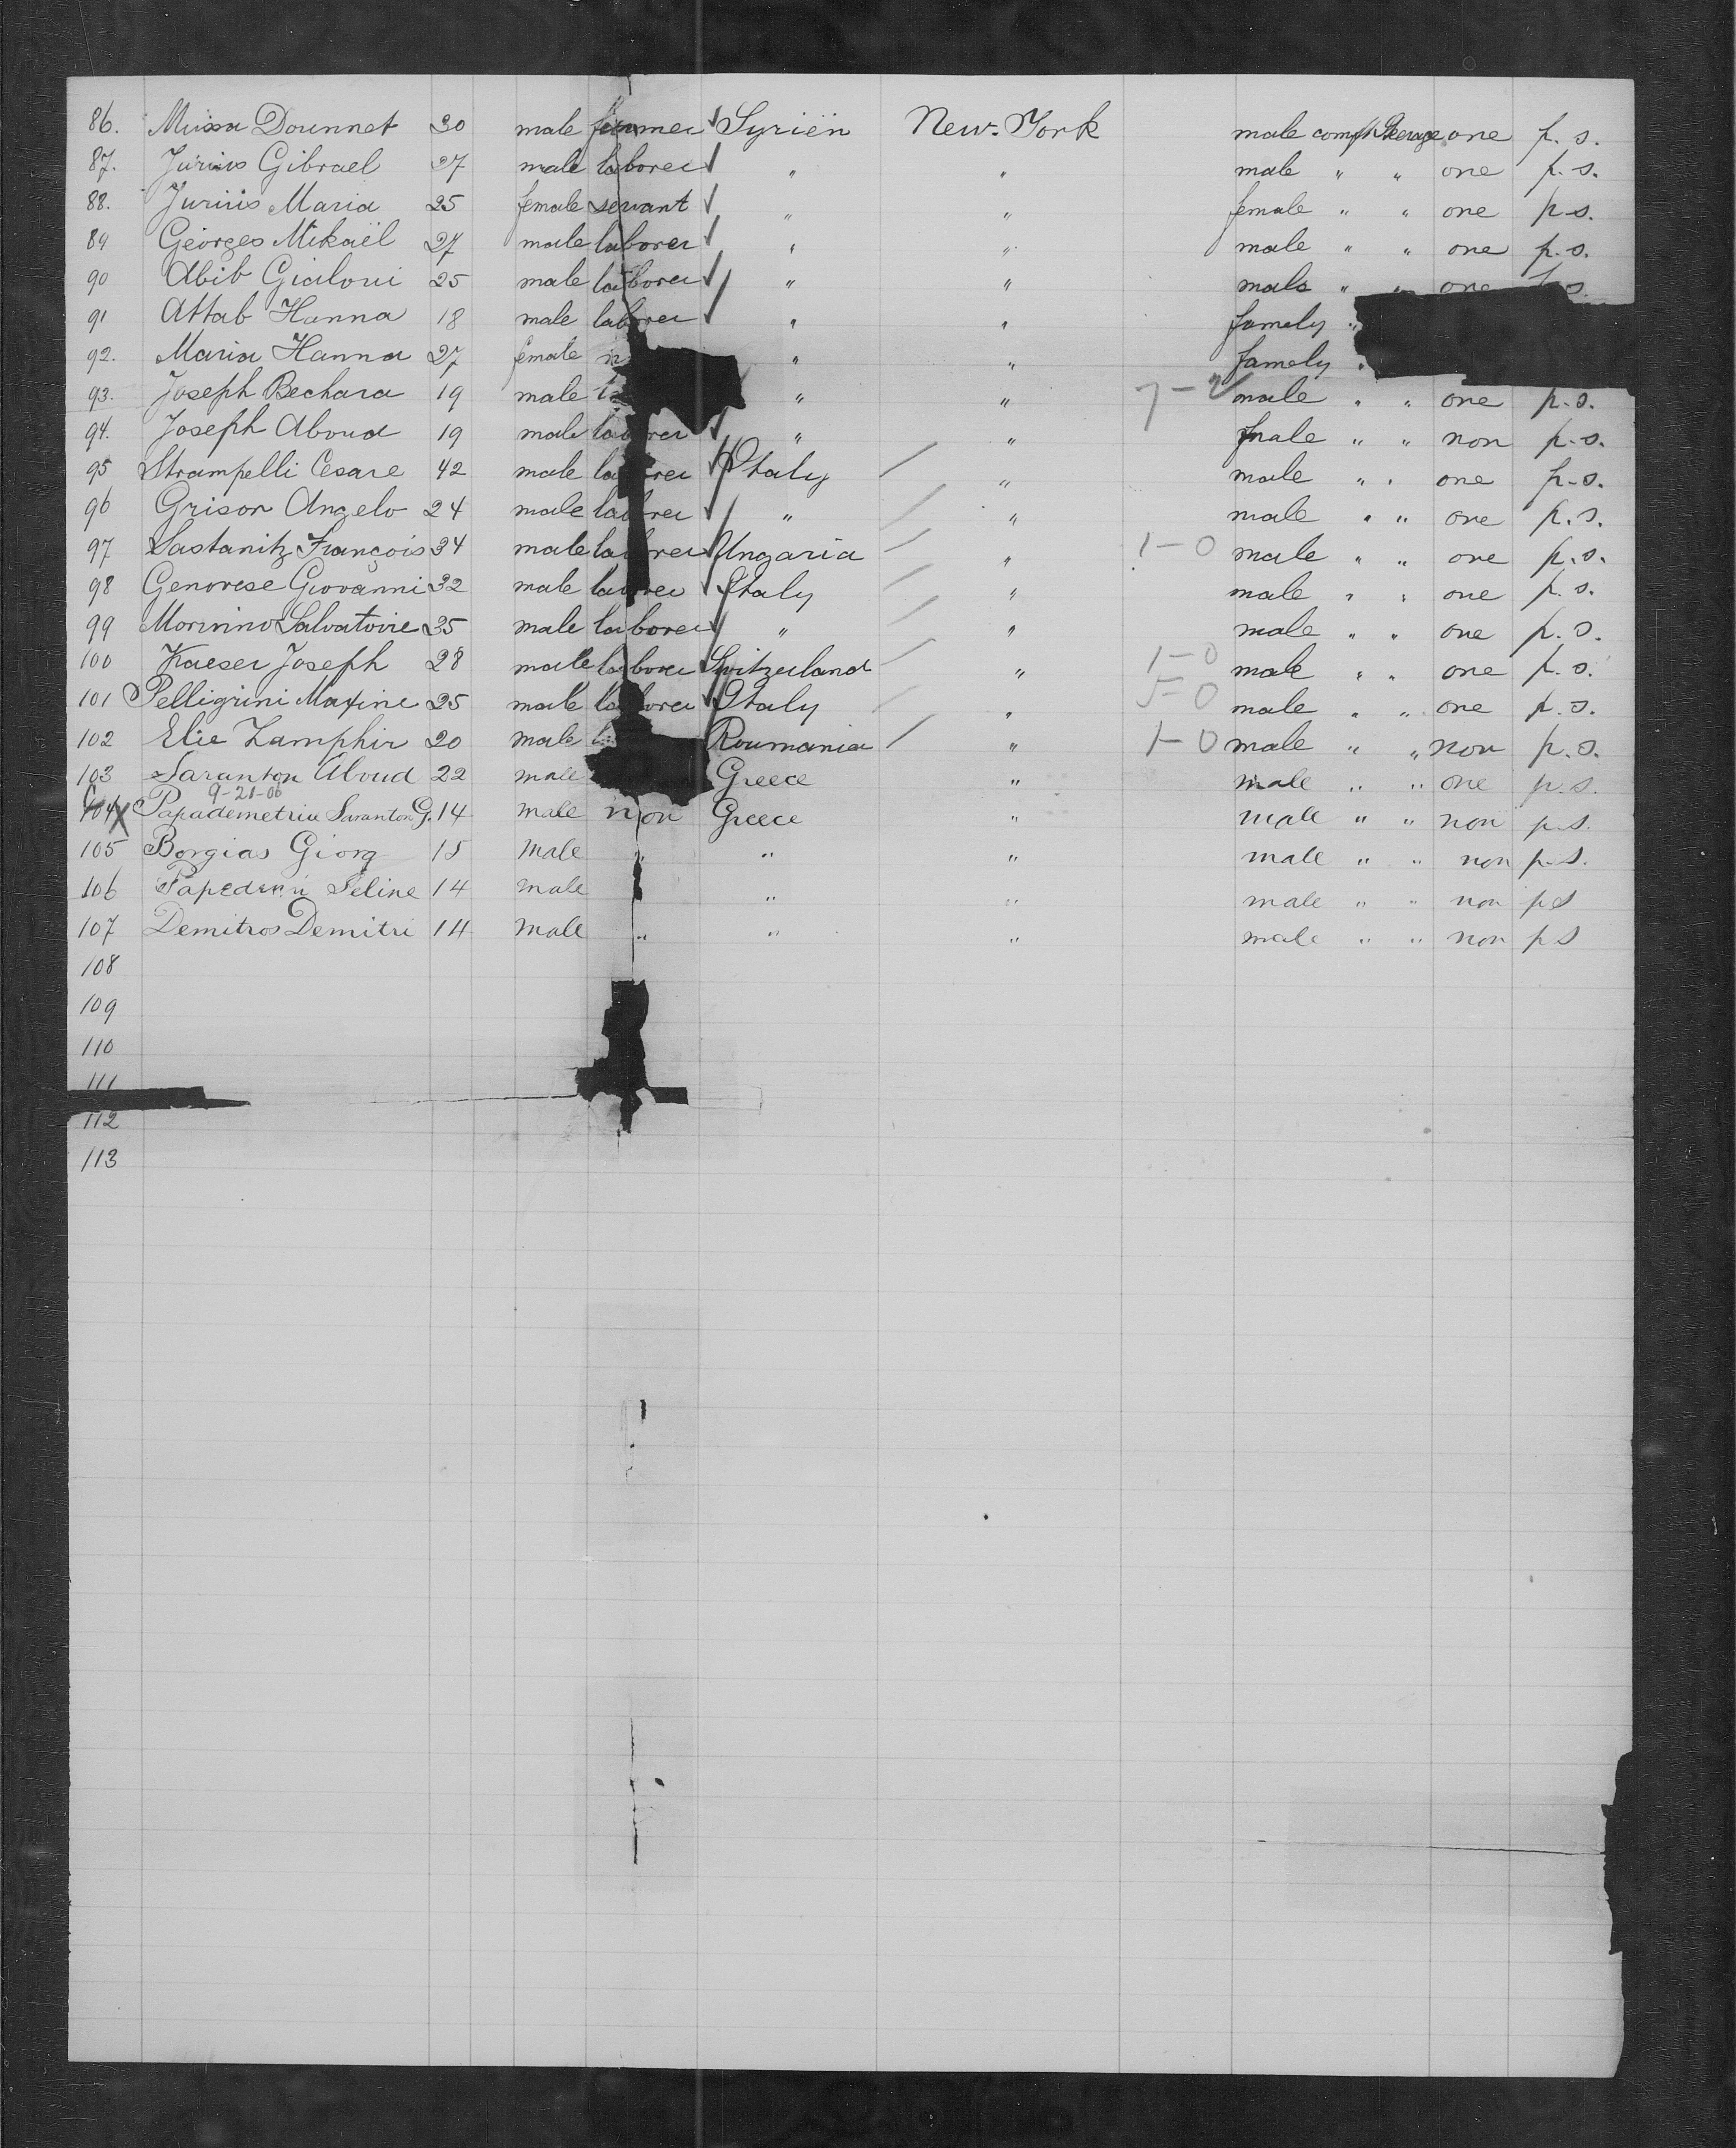 86. Mussa Dounnet 30 male farmer Syrien New-York male compt Steerage one p. s.
87. Jurius Gibrael 27 male laborer " " male " " one p. s.
88. Juriiis Maria 25 female servant " " female " " one p-s.
89 Georges Mikaël 27 male laborer " " male " " one p. s.
90 Abib Gialoui 25 male laborer " " male " " one p. s.
91 Attab Hanna 18 male laborer " " famely "
92. Maria Hanna 27 female " " famely "
93. Joseph Bechara 19 male " " 7-2 male " " one p. s.
94. Joseph Aboud 19 male laborer " " male " " non p. s.
95 Strampelli Cesare 42 male laborer Italy " male " " one p. s.
96 Grison Angelo 24 male laborer " " male " " one p. s.
97 Sastanitz François 34 male laborer Ungaria " 1-0 male " " one p. s.
98 Genovese Giovanni 32 male laborer Italy " male " " one p. s.
99 Morinino Salvatoire 25 male laborer " " male " " one p. s.
100 Kaeser Joseph 28 male laborer Switzerland " 1-0 male " " one p. s.
101 Pelligrini Maxine 25 male laborer Italy " 5-0 male " " one p. s.
102 Elie Zamphir 20 male Roumania " 1-0 male " " non p. s.
103 Saranton Aboud 22 male Greece " male " " one p. s.
9-21-06
104 X Papademetriu Saranton G. 14 male non Greece " male " " non p. s.
105 Borgias Giorg 15 male " " " male " " non p. s.
106 Seline 14 male " " male " " non ps
107 Demitros Demitri 14 male " " " male " " non ps
108
109
110
111
112
113